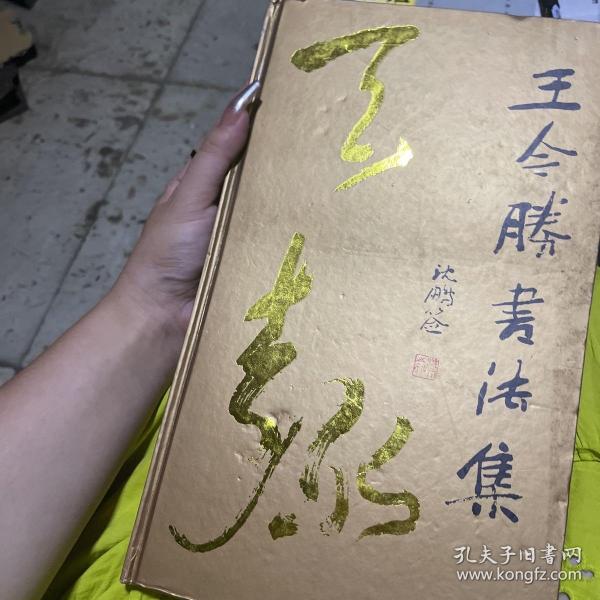 王今勝書法集
沈鹏签
孔夫子旧书网
www.kongfz.com